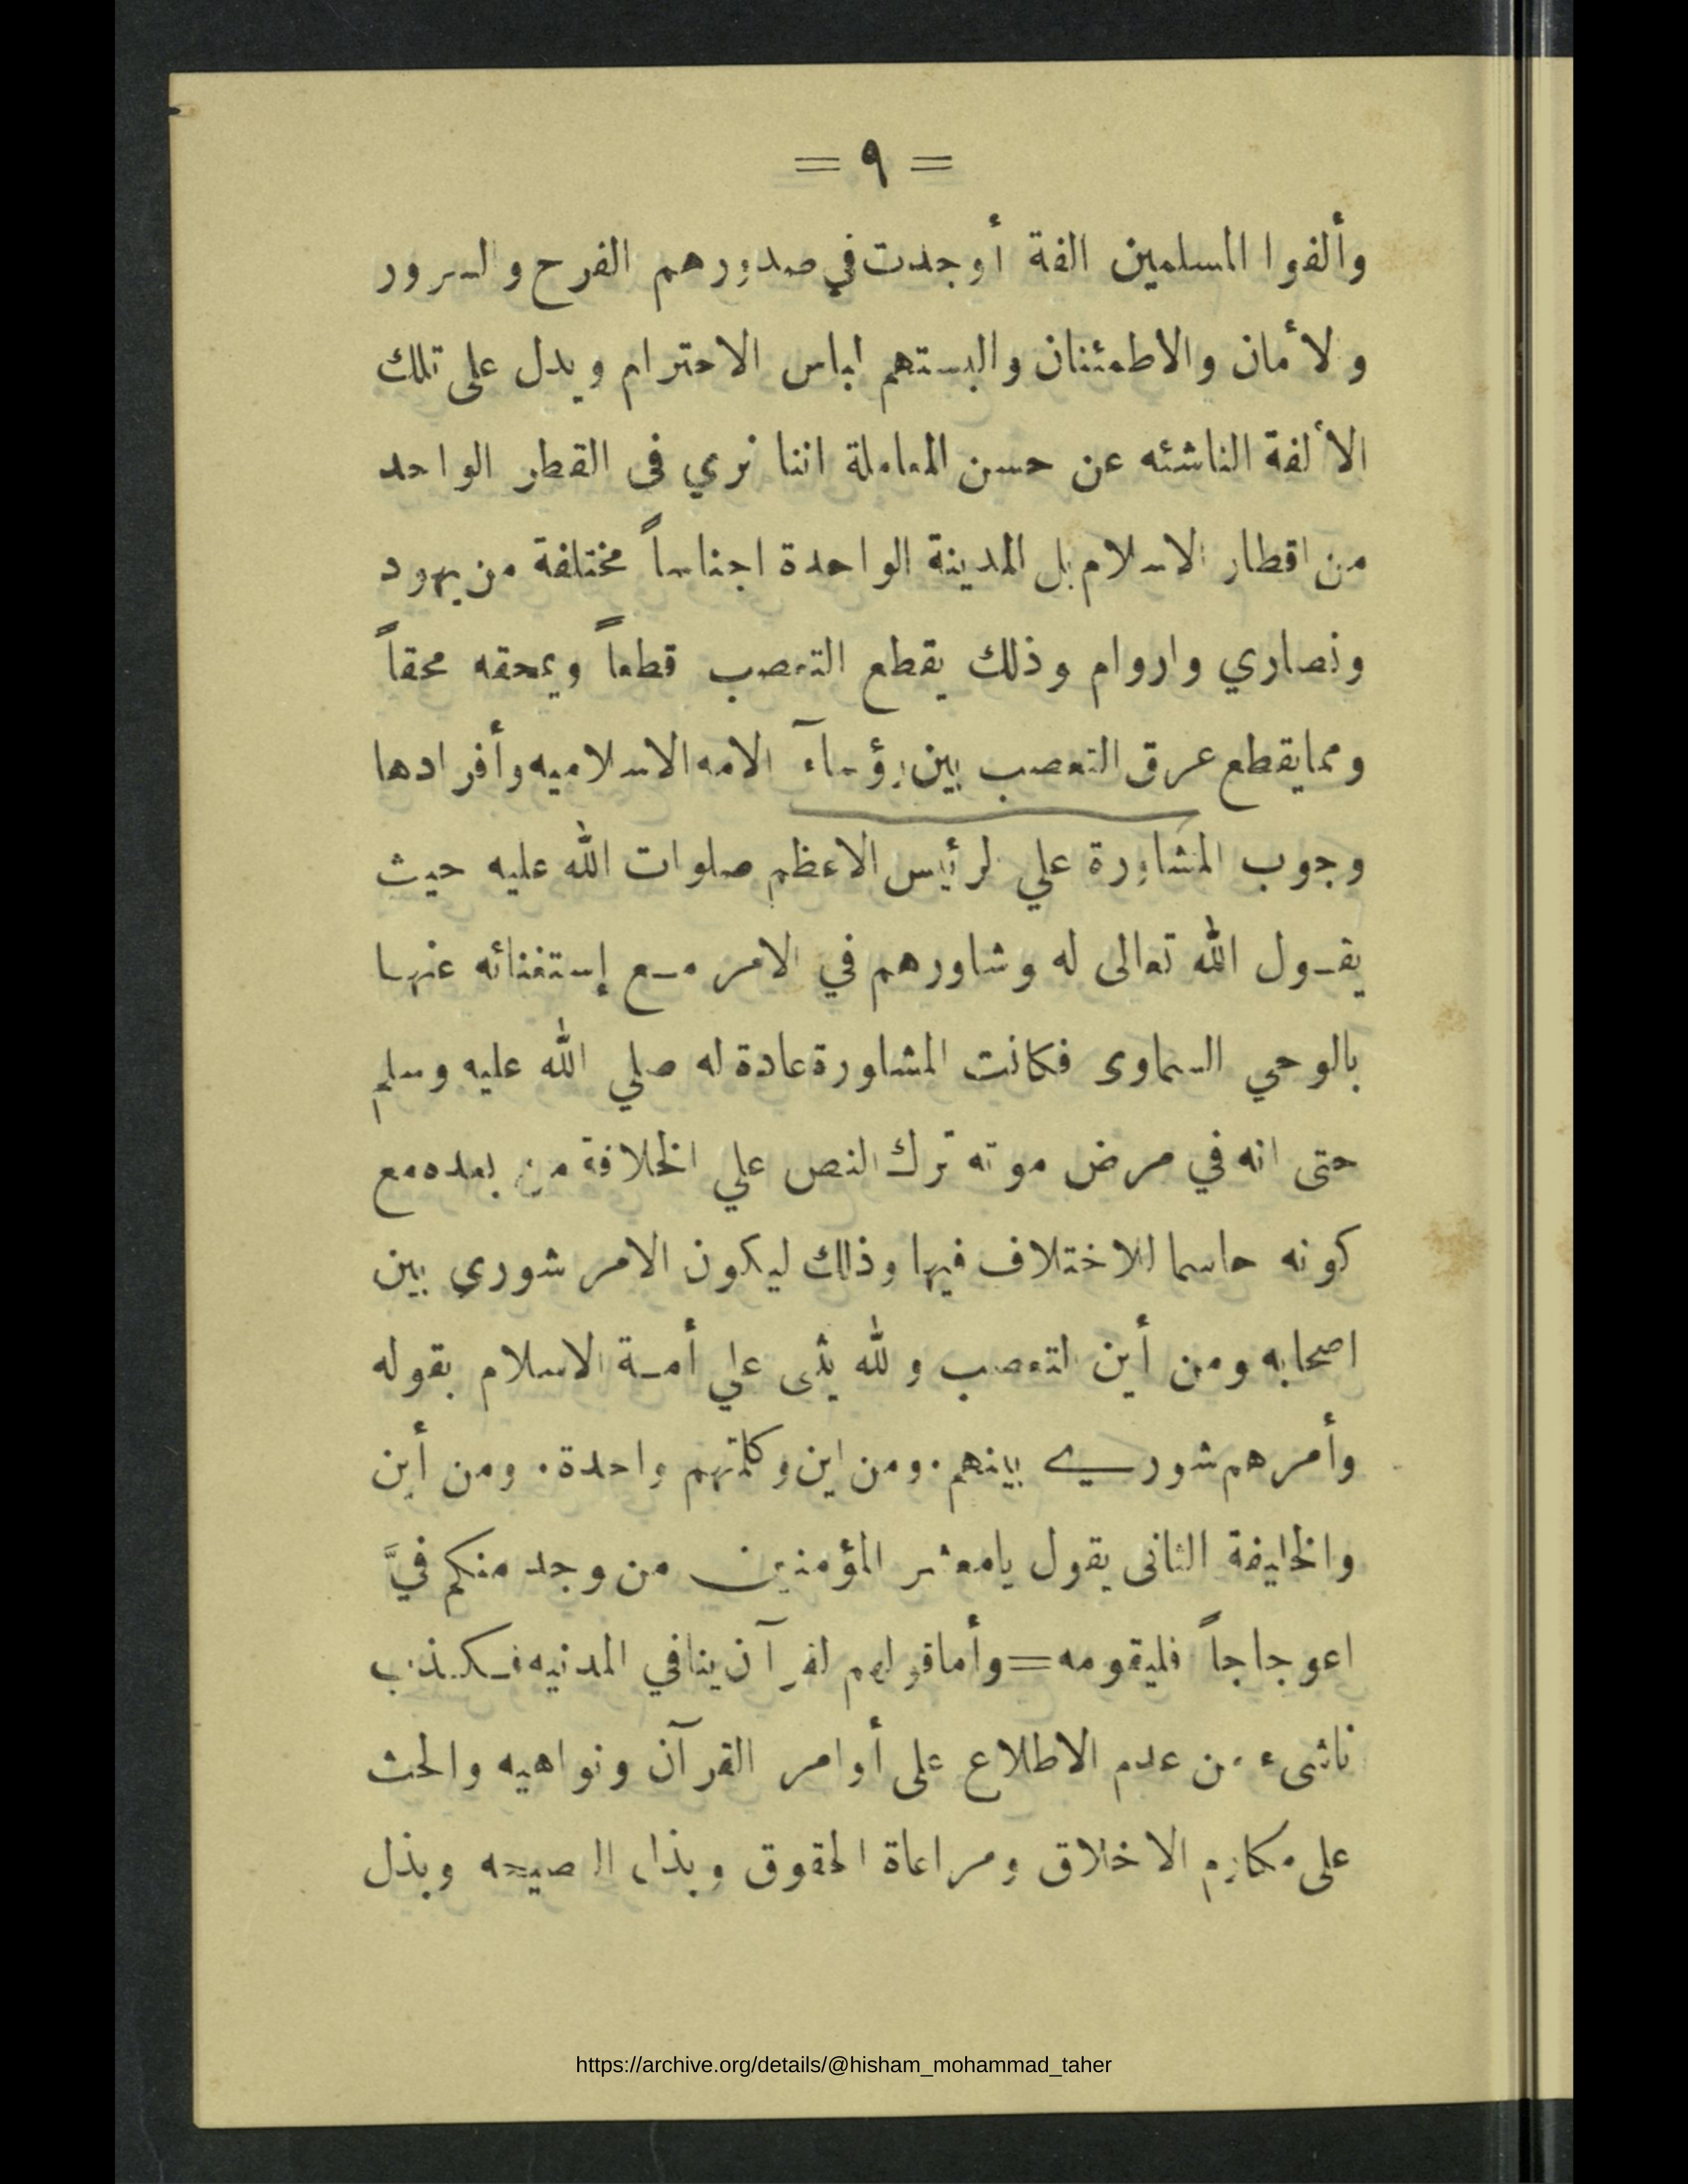 = ٩ =
وألفوا المسلمين الفة أوجدت في صدورهم الفرح والسرور
ولأمان والاطمئنان والبستهم لباس الاحترام ويدل على تلك
الألفة الناشئه عن حسن المعاملة اننا نري فى القطر الواحد
من اقطار الاسلام بل المدينة الواحدة اجناساً مختلفة من يهود
ونصاري واروام وذلك يقطع التعصب قطعاً ويمحقه محقاً
ومما يقطع عرق التعصب بين رؤسآء الامه الاسلاميه وأفرادها
وجوب المشاورة علي لرئيس الاعظم صلوات الله عليه حيث
يقول الله تعالى له وشاورهم في الامر مع إستغنائه عنها
بالوحي السماوى فكانت المشاورة عادة له صلي الله عليه وسلم
حتى انه في مرض موته ترك النص علي الخلافة من بعده مع
كونه حاسما للاختلاف فيها وذلك ليكون الامر شوري بين
اصحابه ومن أين التعصب ولله يثى علي أمة الاسلام بقوله
وأمرهم شوري بينهم. ومن اين وكلمتهم واحدة. ومن أين
والخليفة الثانى يقول يامعشر المؤمنين من وجد منكم فيَّ
اعوجاجاً فليقومه = وأما قولهم لقرآن ينافي المدنيه فكذب
ناشىء من عدم الاطلاع على أوامر القرآن ونواهيه والحث
على مكارم الاخلاق ومراعاة الحقوق وبذل النصيحه وبذل
https://archive.org/details/@hisham_mohammad_taher